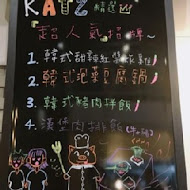 KATZ 精選
超人氣招牌
1. 韓式甜辣紅醬炸雞
2. 韓式泡菜豆腐鍋
3. 韓式豬肉拌飯
4. 漢堡肉排飯